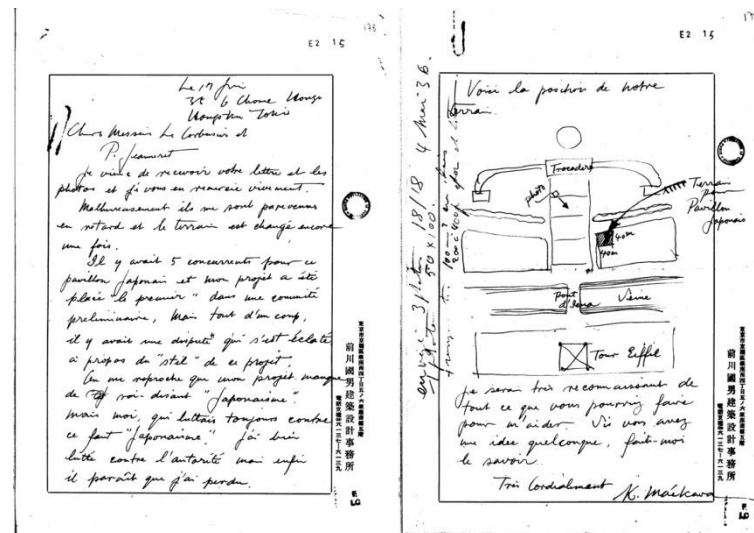 173
E2 15
Le 17 Juin
6 Chome
Chers Messieurs Le Corbusier et
P. Jeanneret
Je viens de recevoir votre lettre et les
photos et je vous en remercie vivement.
Malheureusement ils me sont parvenues
en retard et le terrain est changé encore
une fois.
Il y avait 5 concurrents pour ce
pavillon Japonais et mon projet a été
placé "le premier" dans une comité
preliminaire, mais tout d'un coup,
il y avait une dispute qui s'est éclaté
à propos du "stil" de ce projet.
On me reproche que mon projet manque
de soi-disant "Japonaisme"
mais moi, qui luttais toujours contre
ce "Japonaisme," j'ai bien
lutté contre l'autorité mais enfin
il paraît que j'ai perdu.
前川國男建築設計事務所
E2 15
Voici la position de notre
terrain.
4 Mai 36
18/18
50 x 100
Trocadero
photo
Terrain
pour
Pavillon
Japonais
40m
40m
Pont
d'Iena
Seine
Tour Eiffel
Je serai très reconnaissant de
tout ce que vous pourriez faire
pour m'aider. Si vous avez
une idée quelconque, fait-moi
le savoir.
Très Cordialement
K. Maekawa
前川國男建築設計事務所